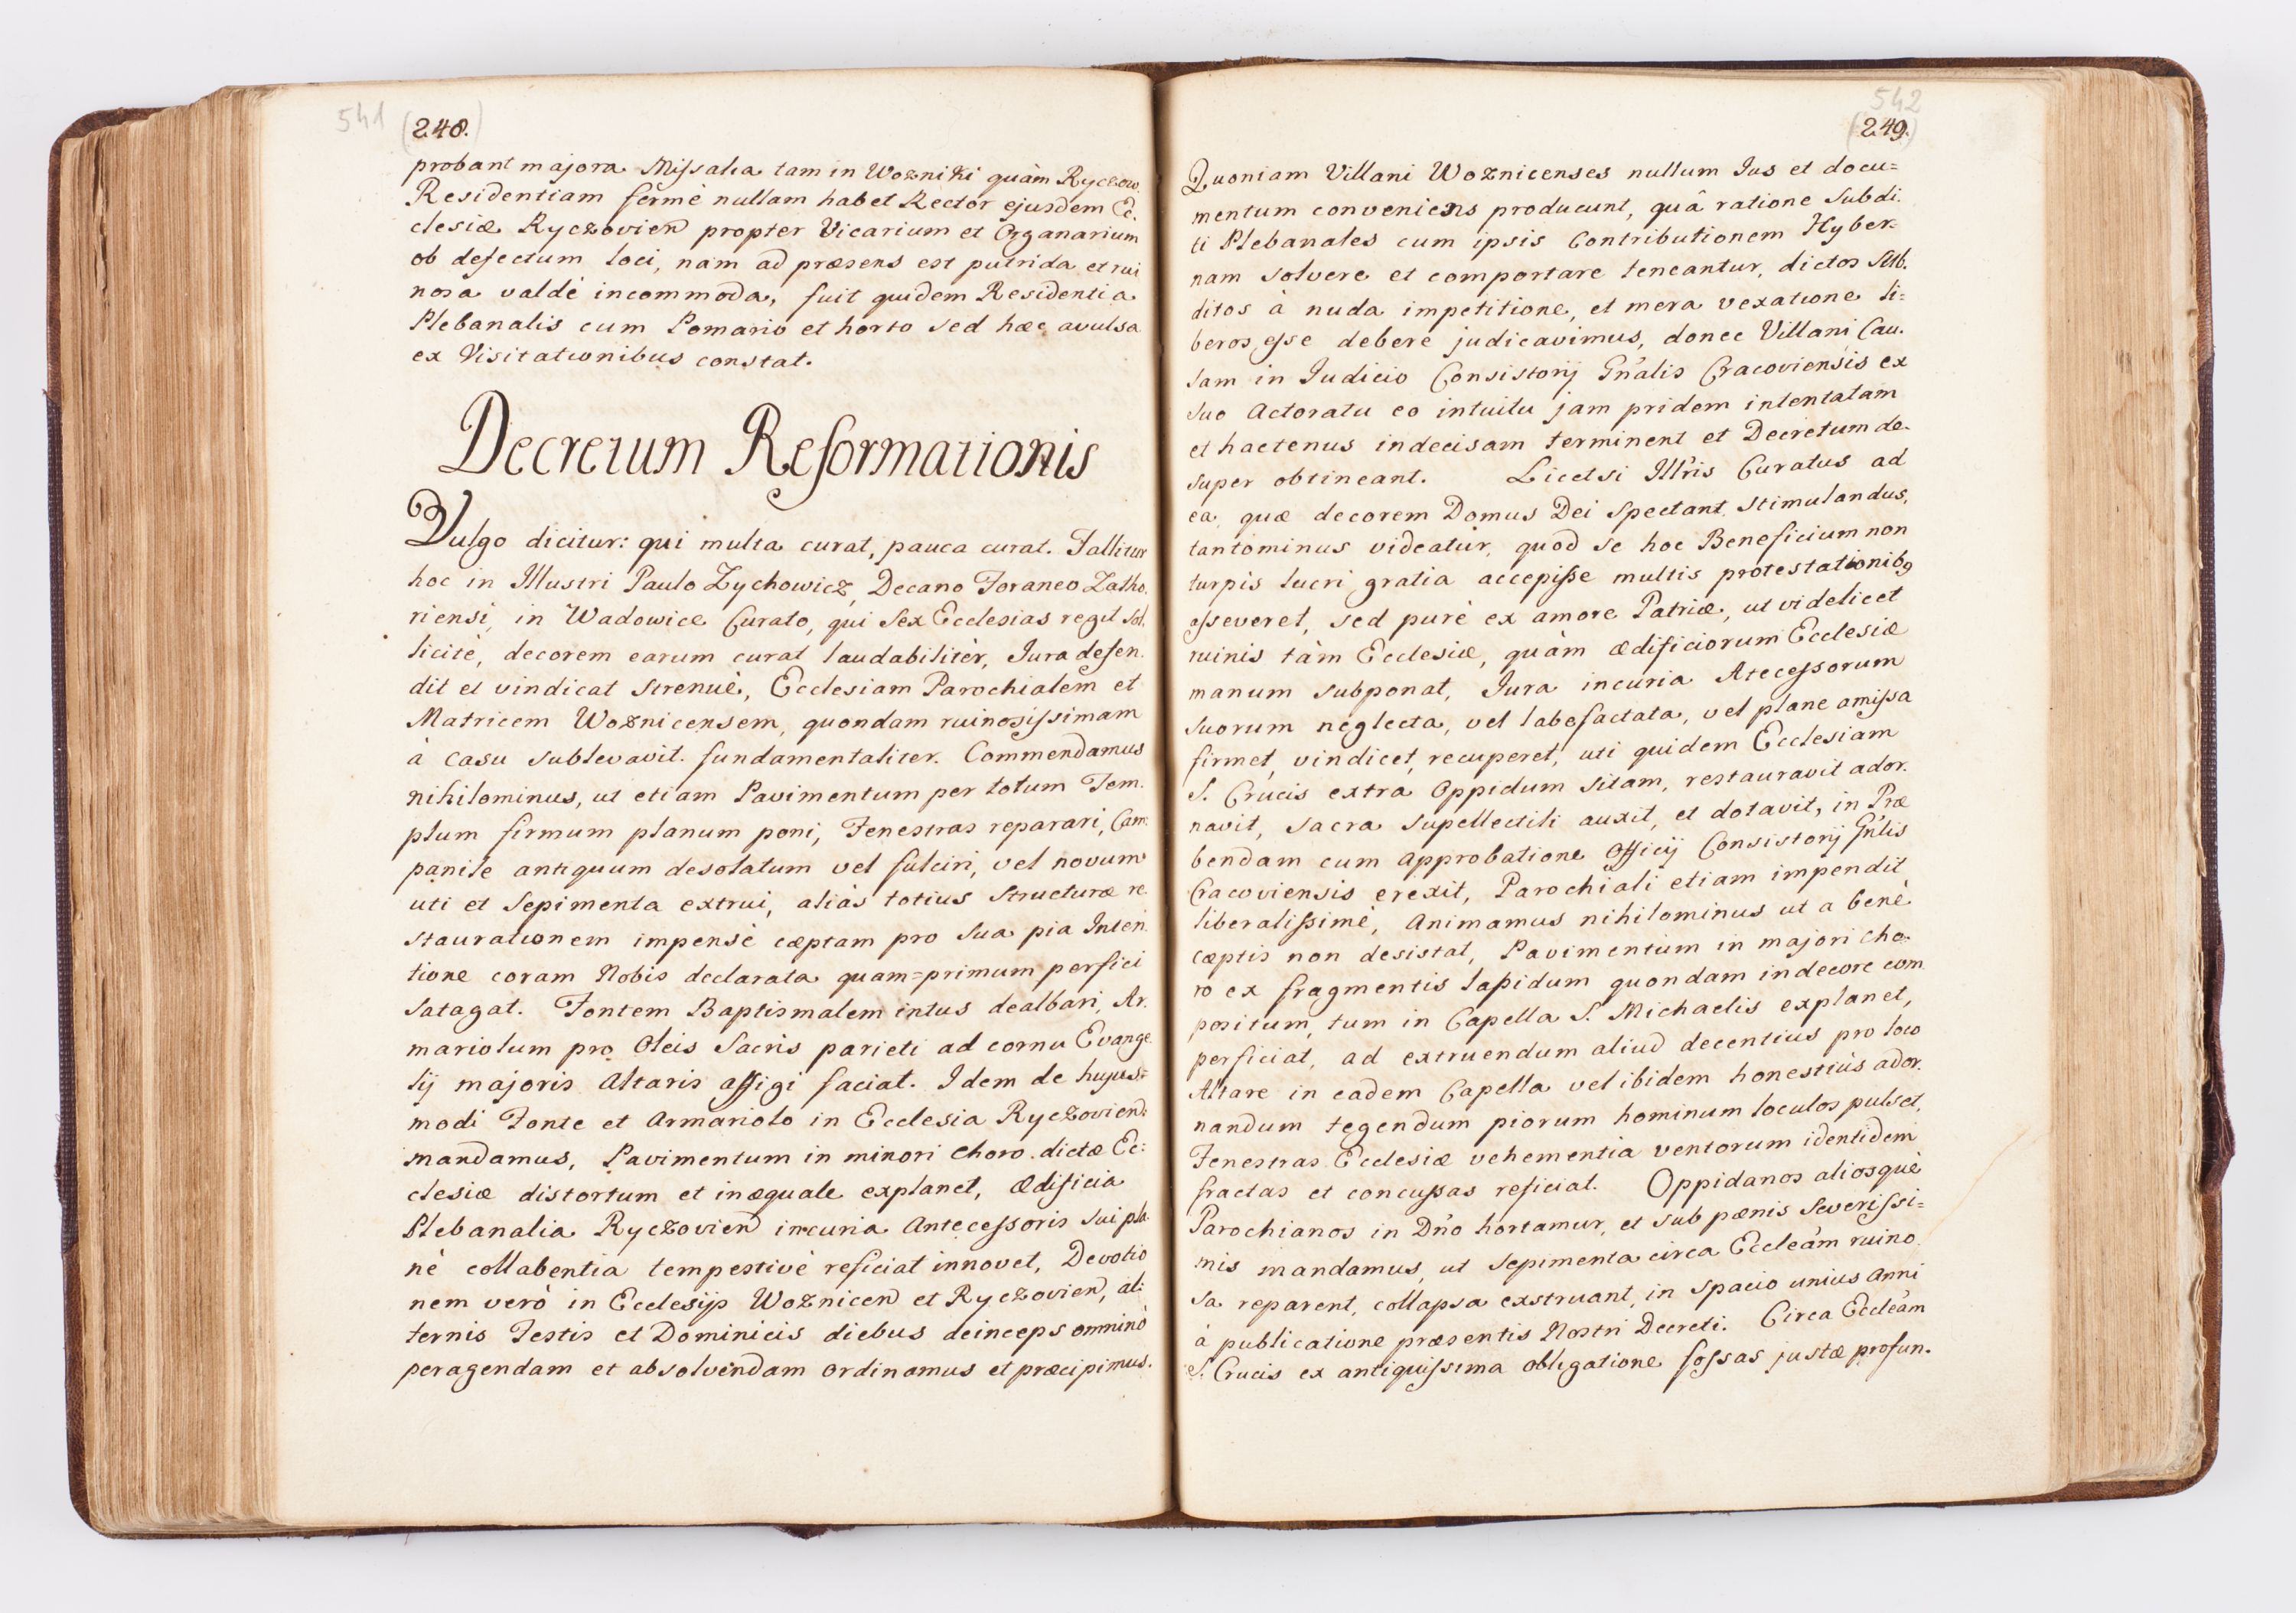 541 (248.)
probant majora Missalia tam in Wozniki quàm Ryczow.
Residentiam fermè nullam habet Rector ejusdem Ec.
clesiæ Ryczovien propter Vicarium et Organarium
ob defectum loci, nam ad præsens est putrida et rui
nosa valdè incommoda, fuit quidem Residentia
Plebanalis cum Pomario et horto sed hæc avulsa
ex Visitationibus constat.
Decretum Reformationis
Vulgo dicitur: qui multa curat, pauca curat. Fallitur
hoc in Illustri Paulo Zychowicz, Decano Foraneo Zatho.
riensi, in Wadowice Curato, qui sex Ecclesias regit sol.
licite, decorem earum curat laudabilitèr, Jura defen.
dit et vindicat strenuè, Ecclesiam Parochialem et
Matricem Woznicensem, quondam ruinosissimam
à casu sublevavit fundamentaliter. Commendamus
nihilominus, ut etiam Pavimentum per totum Tem.
plum firmum planum poni, Fenestras reparari, Cam
panile antiquum desolatum vel fulciri, vel novum
uti et Sepimenta extrui, aliàs totius structuræ re
staurationem impensè cæptam pro sua pia Inten.
tione coram Nobis declarata quam=primum perfici
satagat. Fontem Baptismalem intus dealbari, Ar.
mariolum pro Oleis Sacris parieti ad cornu Evange
lij majoris Altaris affigi faciat. Idem de hujus=
modi Fonte et Armariolo in Ecclesia Ryczovien:
mandamus, Pavimentum in minori choro dictæ Ec:
clesiæ distortum et inæquale explanet, Ædificia
Plebanalia Ryczovien incuria Antecessoris sui pla.
nè collabentia tempestivè reficiat innovet, Devotio
nem verò in Ecclesijs Woznicen et Ryczovien, al:
ternis Festis et Dominicis diebus deinceps omninò
peragendam et absolvendam ordinamus et præcipimus.
542
(249.)
Quoniam Villani Woznicenses nullum Jus et docu=
mentum conveniens producunt, quâ ratione Subdi.
ti Plebanales cum ipsis Contributionem Hyber-
nam solvere et comportare teneantur, dictos Sub.
ditos à nuda impetitione, et mera vexatione li=
beros esse debere judicavimus, donec Villani Cau.
sam in Judicio Consistorij Gnâlis Cracoviensis ex
suo Actoratu eo intuitu jam pridem intentatam
et hactenus indecisam terminent et Decretum de-
super obtineant. Licetsi Illris Curatus ad
ea, quæ decorem Domus Dei spectant stimulandus,
tantominus videatur, quod se hoc Beneficium non
turpis lucri gratia accepisse multis protestationibq
esseveret, sed purè ex amore Patriæ, ut videlicet
ruinis tàm Ecclesiæ, quàm ædificiorum Ecclesiæ
manum subponat, Jura incuria Atecessorum
suorum neglecta, vel labefactata, vel plane amissa
firmet, vindicet, recuperet, uti quidem Ecclesiam
S. Crucis extra Oppidum sitam, restauravit ador.
navit, sacra supellectili auxit, et dotavit, in Præ
bendam cum Approbatione Officij Consistorij Gnlis
Cracoviensis erexit, Parochiali etiam impendit
liberalissimè, Animamus nihilominus ut a benè
cæptis non desistat, Pavimentum in majori cho-
ro ex fragmentis lapidum quondam indecore com
positum, tum in Capella S. Michaelis explanet,
perficiat, ad extruendum aliud decentius pro loco
Altare in eadem Capella vel ibidem honestiùs ador.
nandum tegendum piorum hominum loculos pulset,
Fenestras Ecclesiæ vehementia ventorum identidem
fractas et concussas reficiat. Oppidanos aliosquè
Parochianos in Dño hortamur, et sub pænis severissi=
mis mandamus, ut sepimenta circa Eccleām ruino
sa reparent, collapsa exstruant, in spacio unius Anni
à publicatione præsentis Nostri Decreti. Circa Eccleām
S. Crucis ex antiquissima obligatione fossas justæ profun.